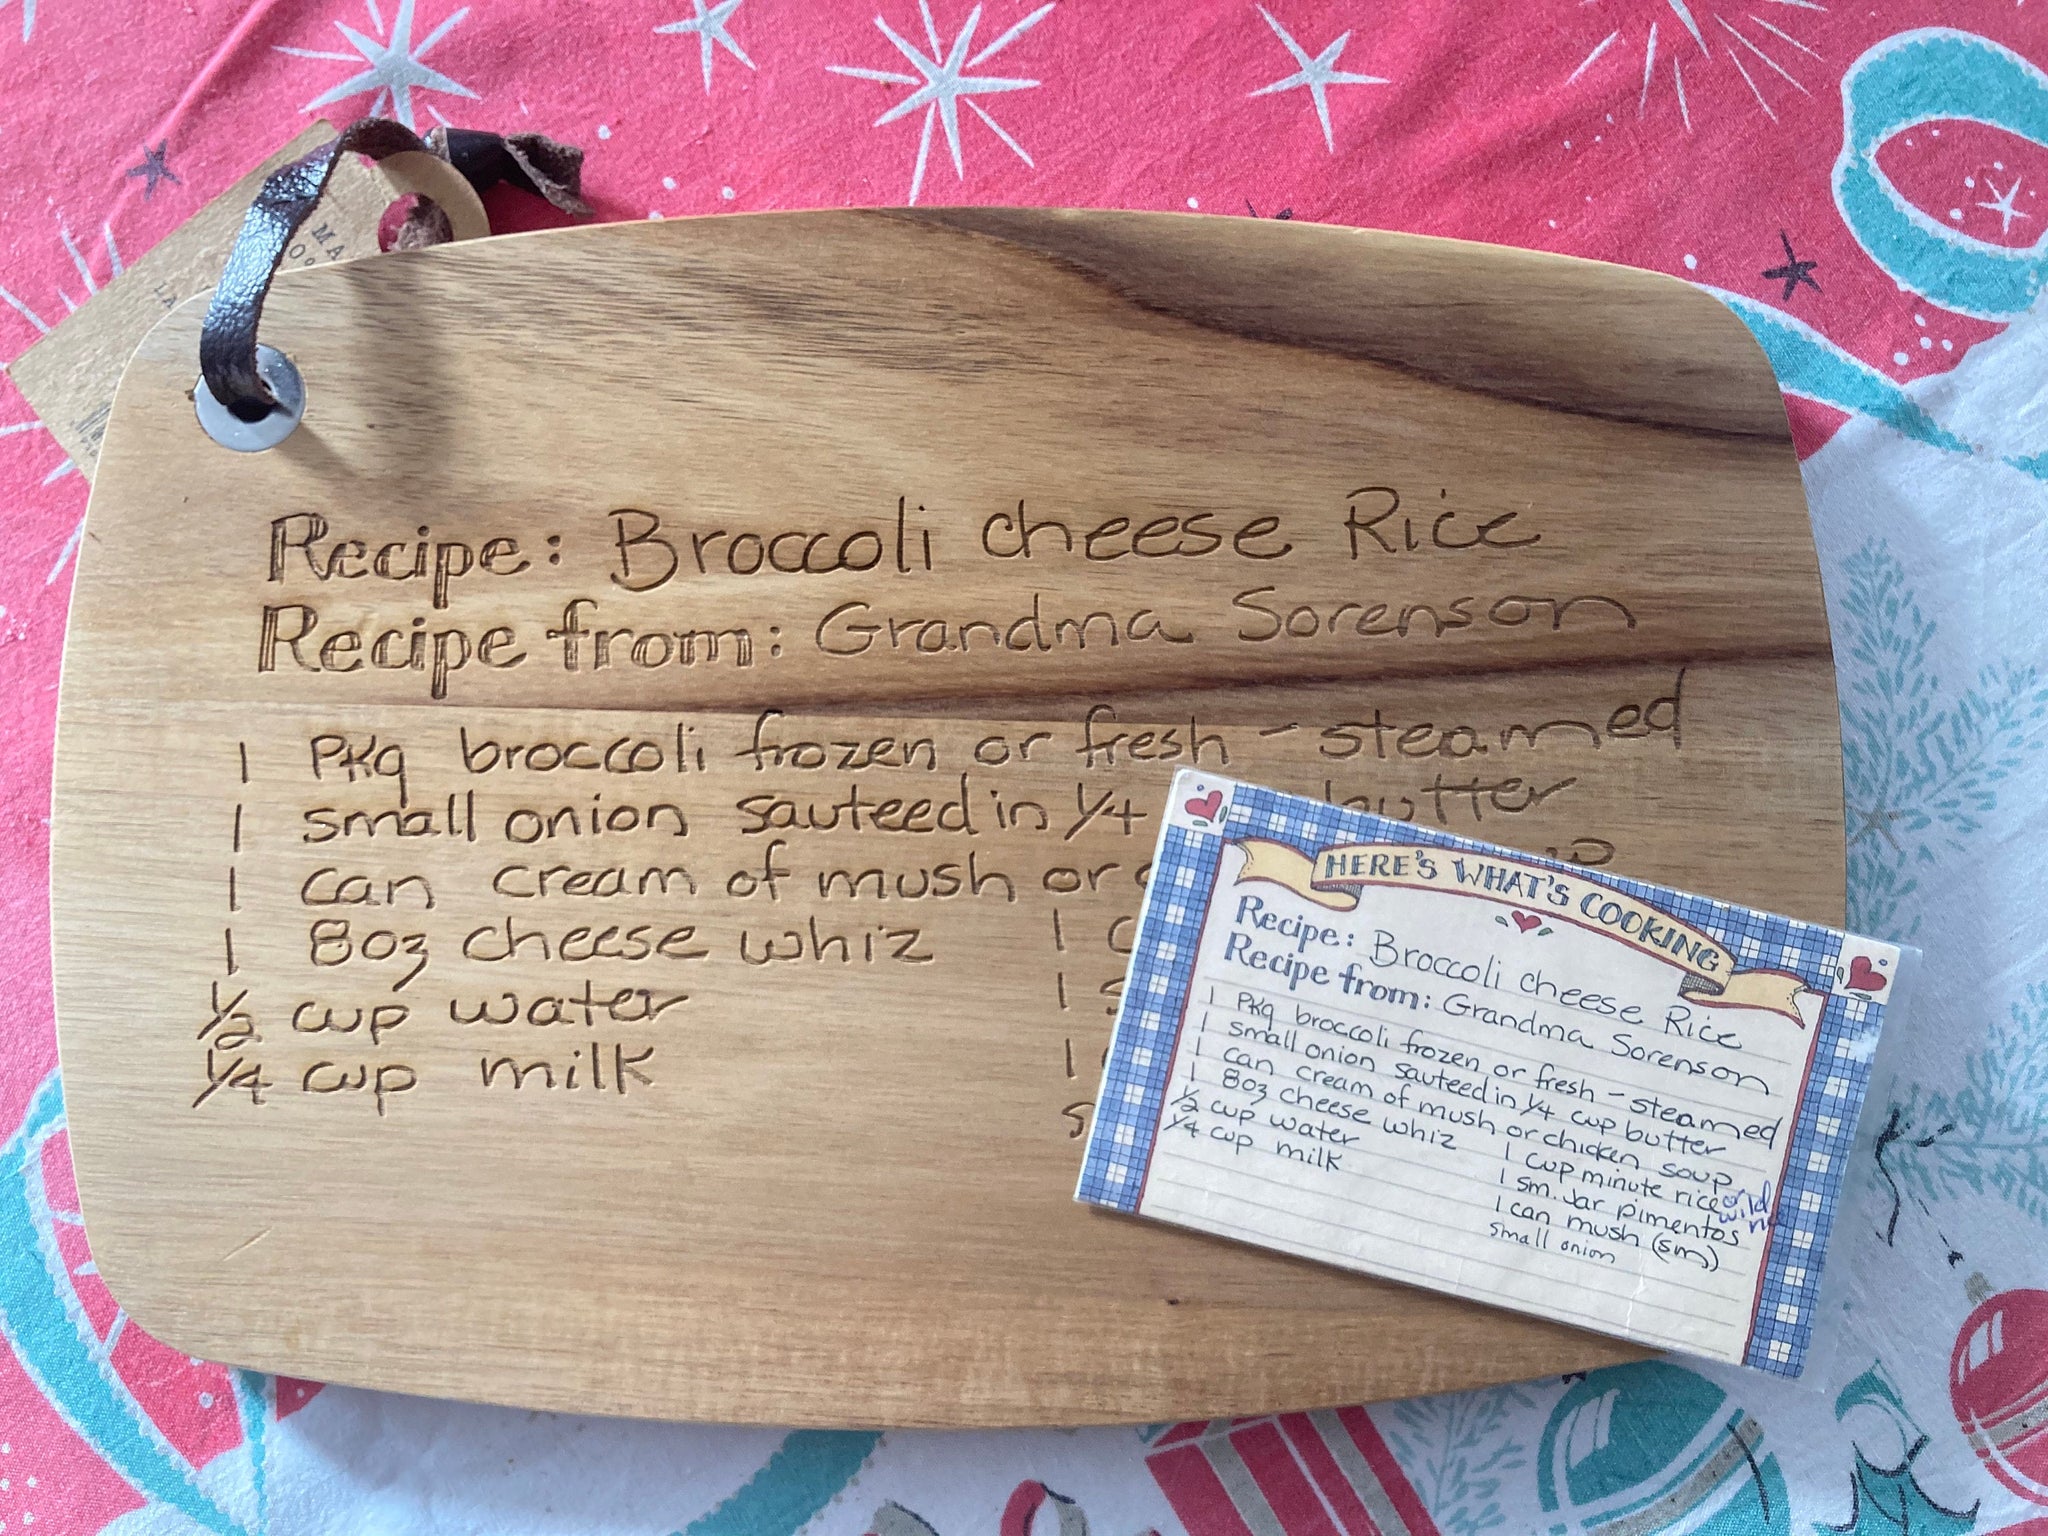 MA
Recipe: Broccoli cheese Rice
Recipe from: Grandma Sorenson
1 PKg broccoli frozen or fresh - steamed
1 small onion sauteed in 1/4 butter
1 can cream of mush or
1 8oz cheese whiz 1
1/2 cup water 1
1/4 cup milk 1
HERE'S WHAT'S COOKING
Recipe: Broccoli cheese Rice
Recipe from: Grandma Sorenson
1 PKg broccoli frozen or fresh - steamed
1 small onion sauteed in 1/4 cup butter
1 can cream of mush or chicken soup
1 8oz cheese whiz 1 cup minute rice or wild
1/2 cup water 1 sm. Jar pimentos
1/4 cup milk 1 can mush (sm)
small onion